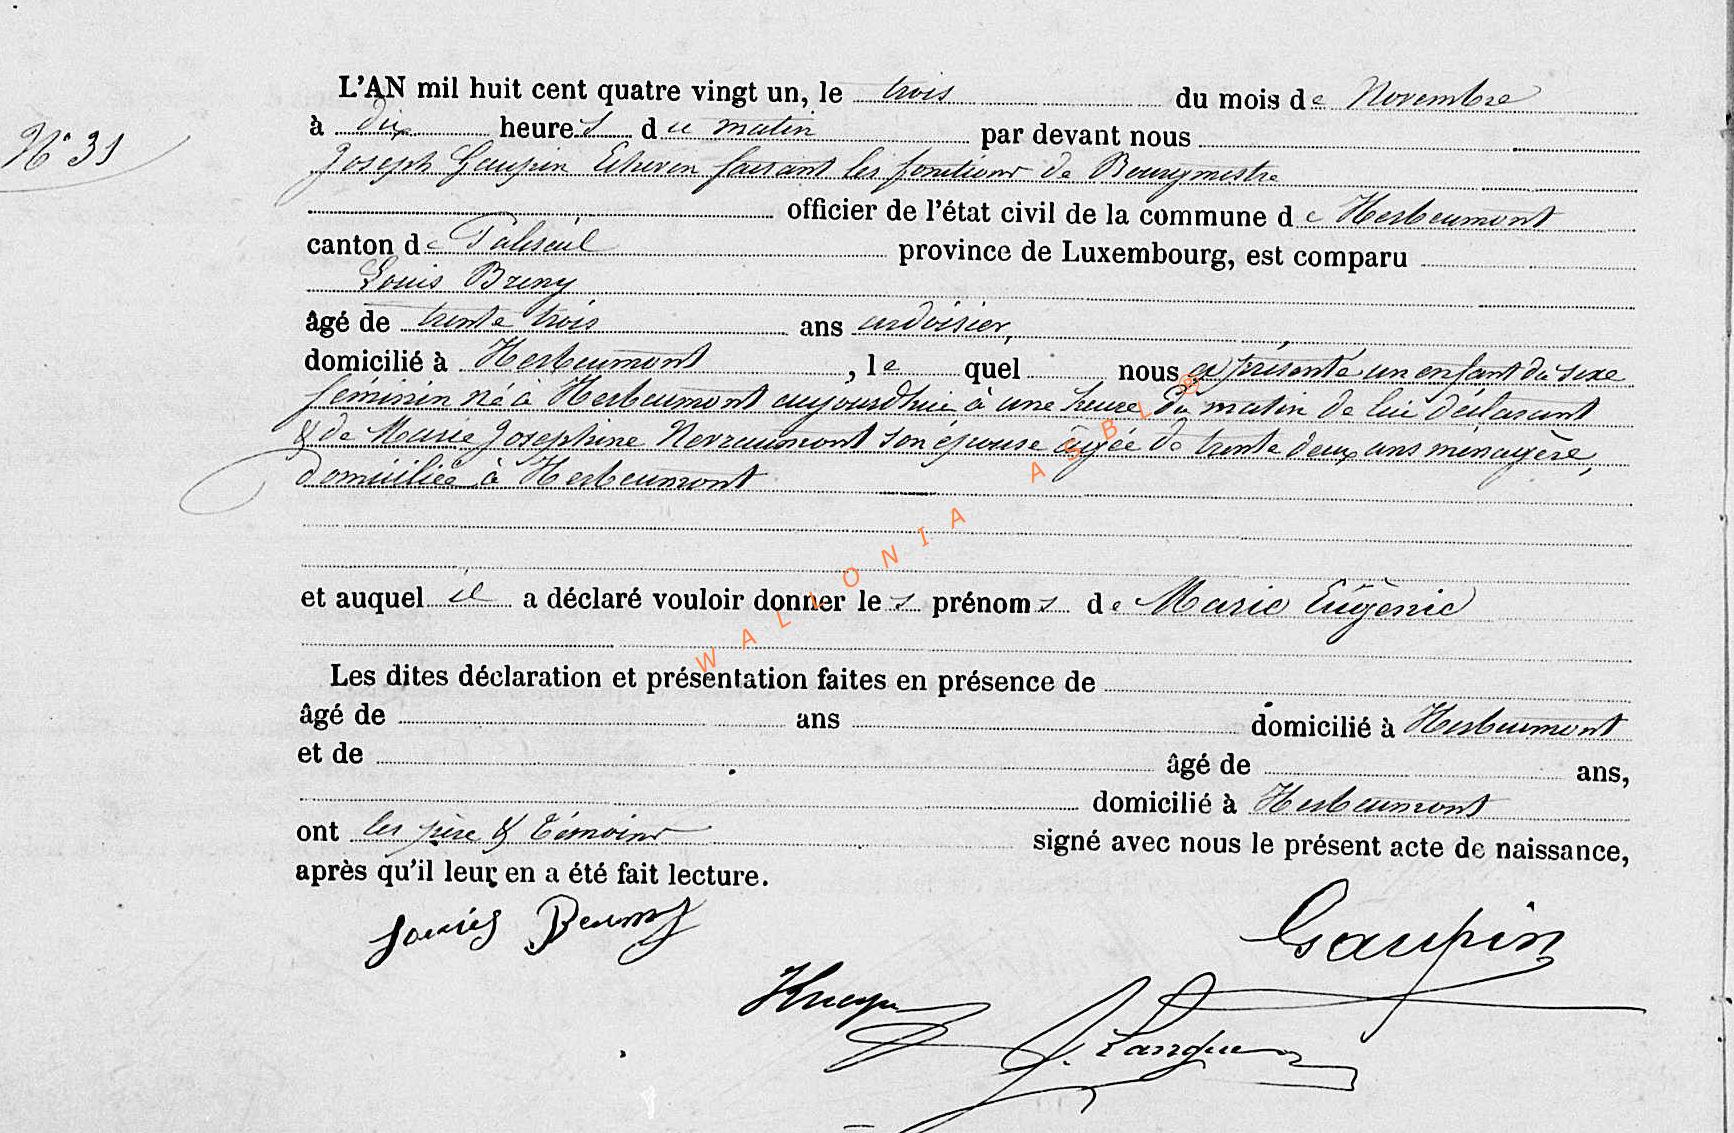 L'AN mil huit cent quatre vingt un, le trois du mois de Novembre
N° 31
à dix heures du matin par devant nous
Joseph Gaupin Echevin faisant les fonctions de Bourgmestre
officier de l'état civil de la commune de Herbeumont
canton de Paliseul province de Luxembourg, est comparu
Louis
âgé de trente trois ans ardoisier,
domicilié à Herbeumont, le quel nous a présenté un enfant du sexe
féminin né à Herbeumont aujourdhui à une heure du matin de lui déclarant
& de Marie Josephine son épouse âgée de trente deux ans ménagère,
domiciliée à Herbeumont
et auquel il a déclaré vouloir donner les prénoms de Marie Eugènie
Les dites déclaration et présentation faites en présence de
âgé de ans domicilié à Herbeumont
et de âgé de ans,
domicilié à Herbeumont
ont les père & témoins signé avec nous le présent acte de naissance,
après qu'il leur en a été fait lecture.
Gaupin
WALLONIA ASBL ®